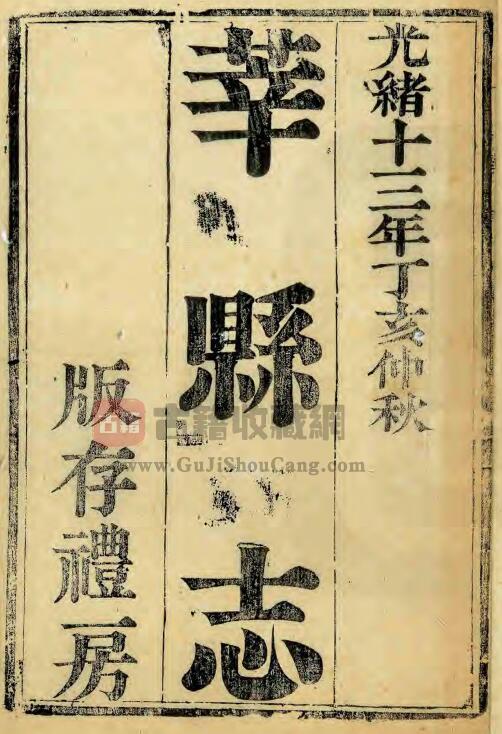 光緒十三年丁亥仲秋
莘縣志
版存禮房
古籍 古籍收藏網
www.GuJiShouCang.com